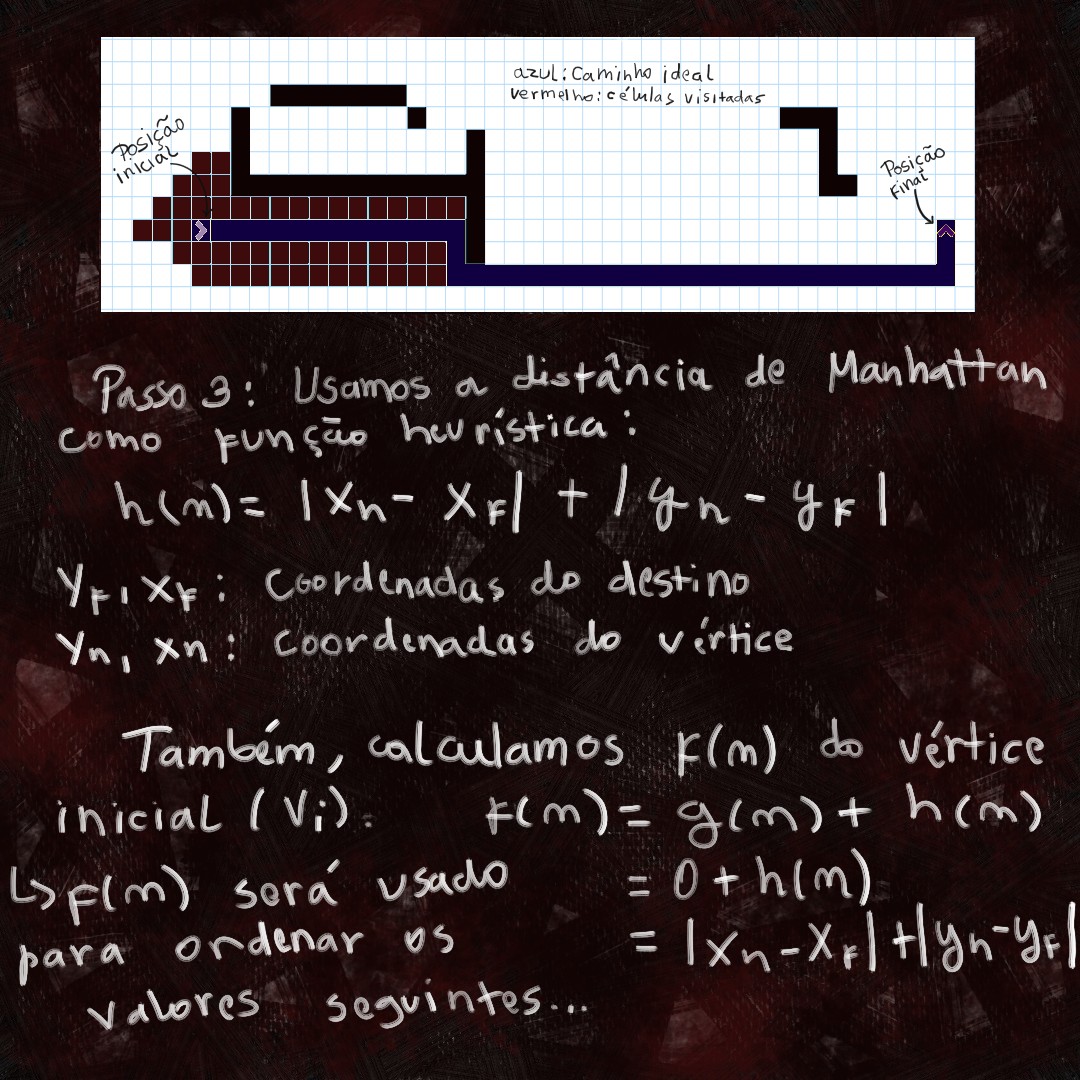 azul: Caminho ideal
vermelho: células visitadas
Posição
inicial
Posição
Final
Passo 3: Usamos a distância de Manhattan
como função heurística:
h(n) = |xn - xF| + |yn - yF|
yF, xF: Coordenadas do destino
yn, xn: coordenadas do vértice
Também, calculamos F(n) do vértice
inicial (Vi). F(n) = g(n) + h(n)
↳ F(n) será usado = 0 + h(n)
para ordenar os = |xn - xF| + |yn - yF|
valores seguintes...